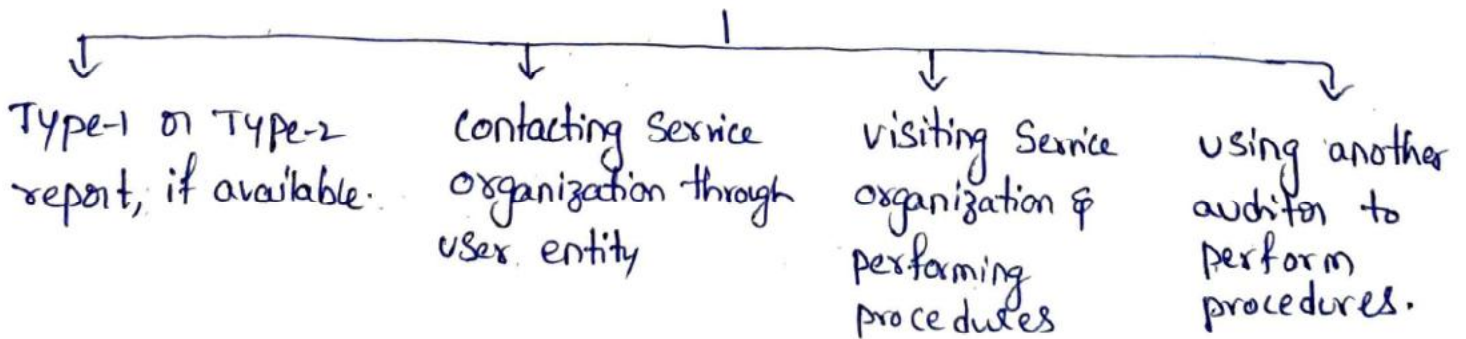 Type-1 or Type-2
report, if available.
contacting Service
organization through
user entity
visiting Service
organization &
performing
procedures
using another
auditor to
perform
procedures.